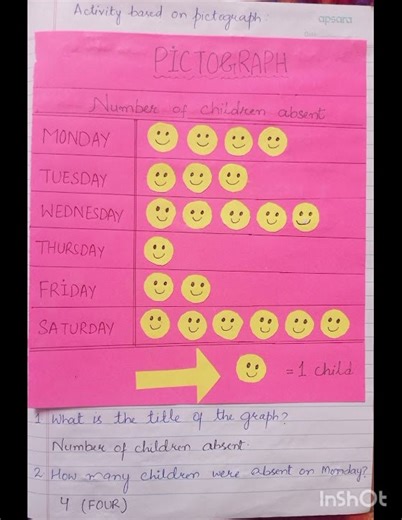 Activity based on pictograph:
apsara
PICTOGRAPH
Number of children absent
MONDAY
TUESDAY
WEDNESDAY
THURSDAY
FRIDAY
SATURDAY
= 1 child
1 What is the title of the graph?
Number of children absent.
2 How many children were absent on Monday?
4 (FOUR)
InShOt